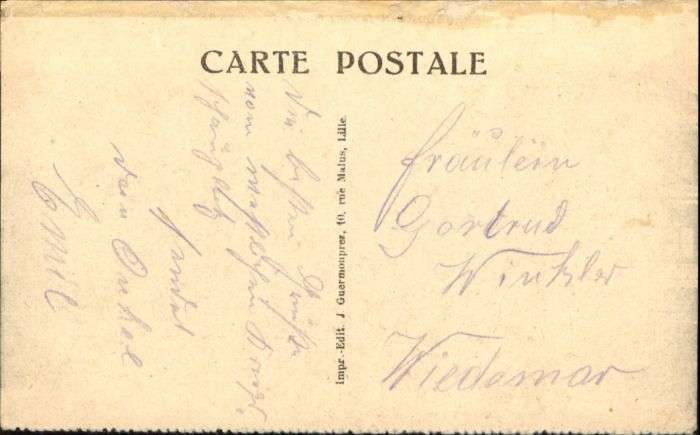 CARTE POSTALE
Die besten Grüße
vom westlichen Kriegs
schauplatz
sendet
dein Onkel
Emil
Impr.-Edit. J Guermonprez, 10, rue Malus, Lille.
Fräulein
Gertrud
Winkler
Wiedemar